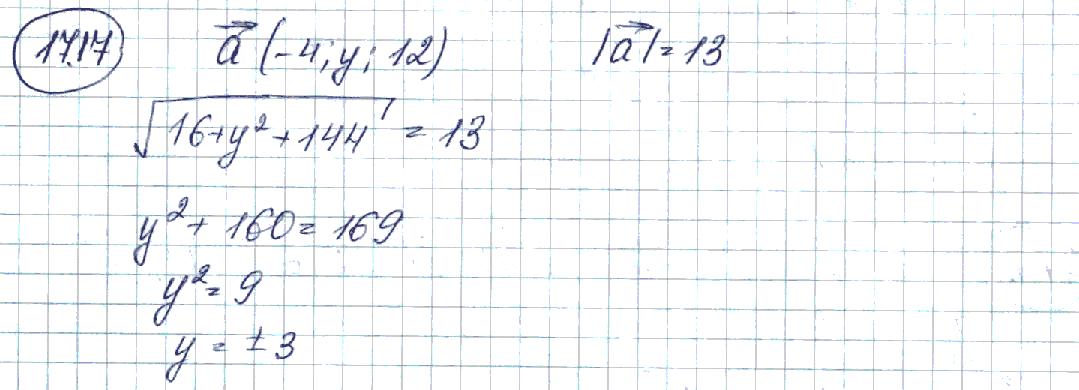 17.17 a⃗ (-4; y; 12) |a⃗| = 13
√(16+y²+144) = 13
y² + 160 = 169
y² = 9
y = ± 3